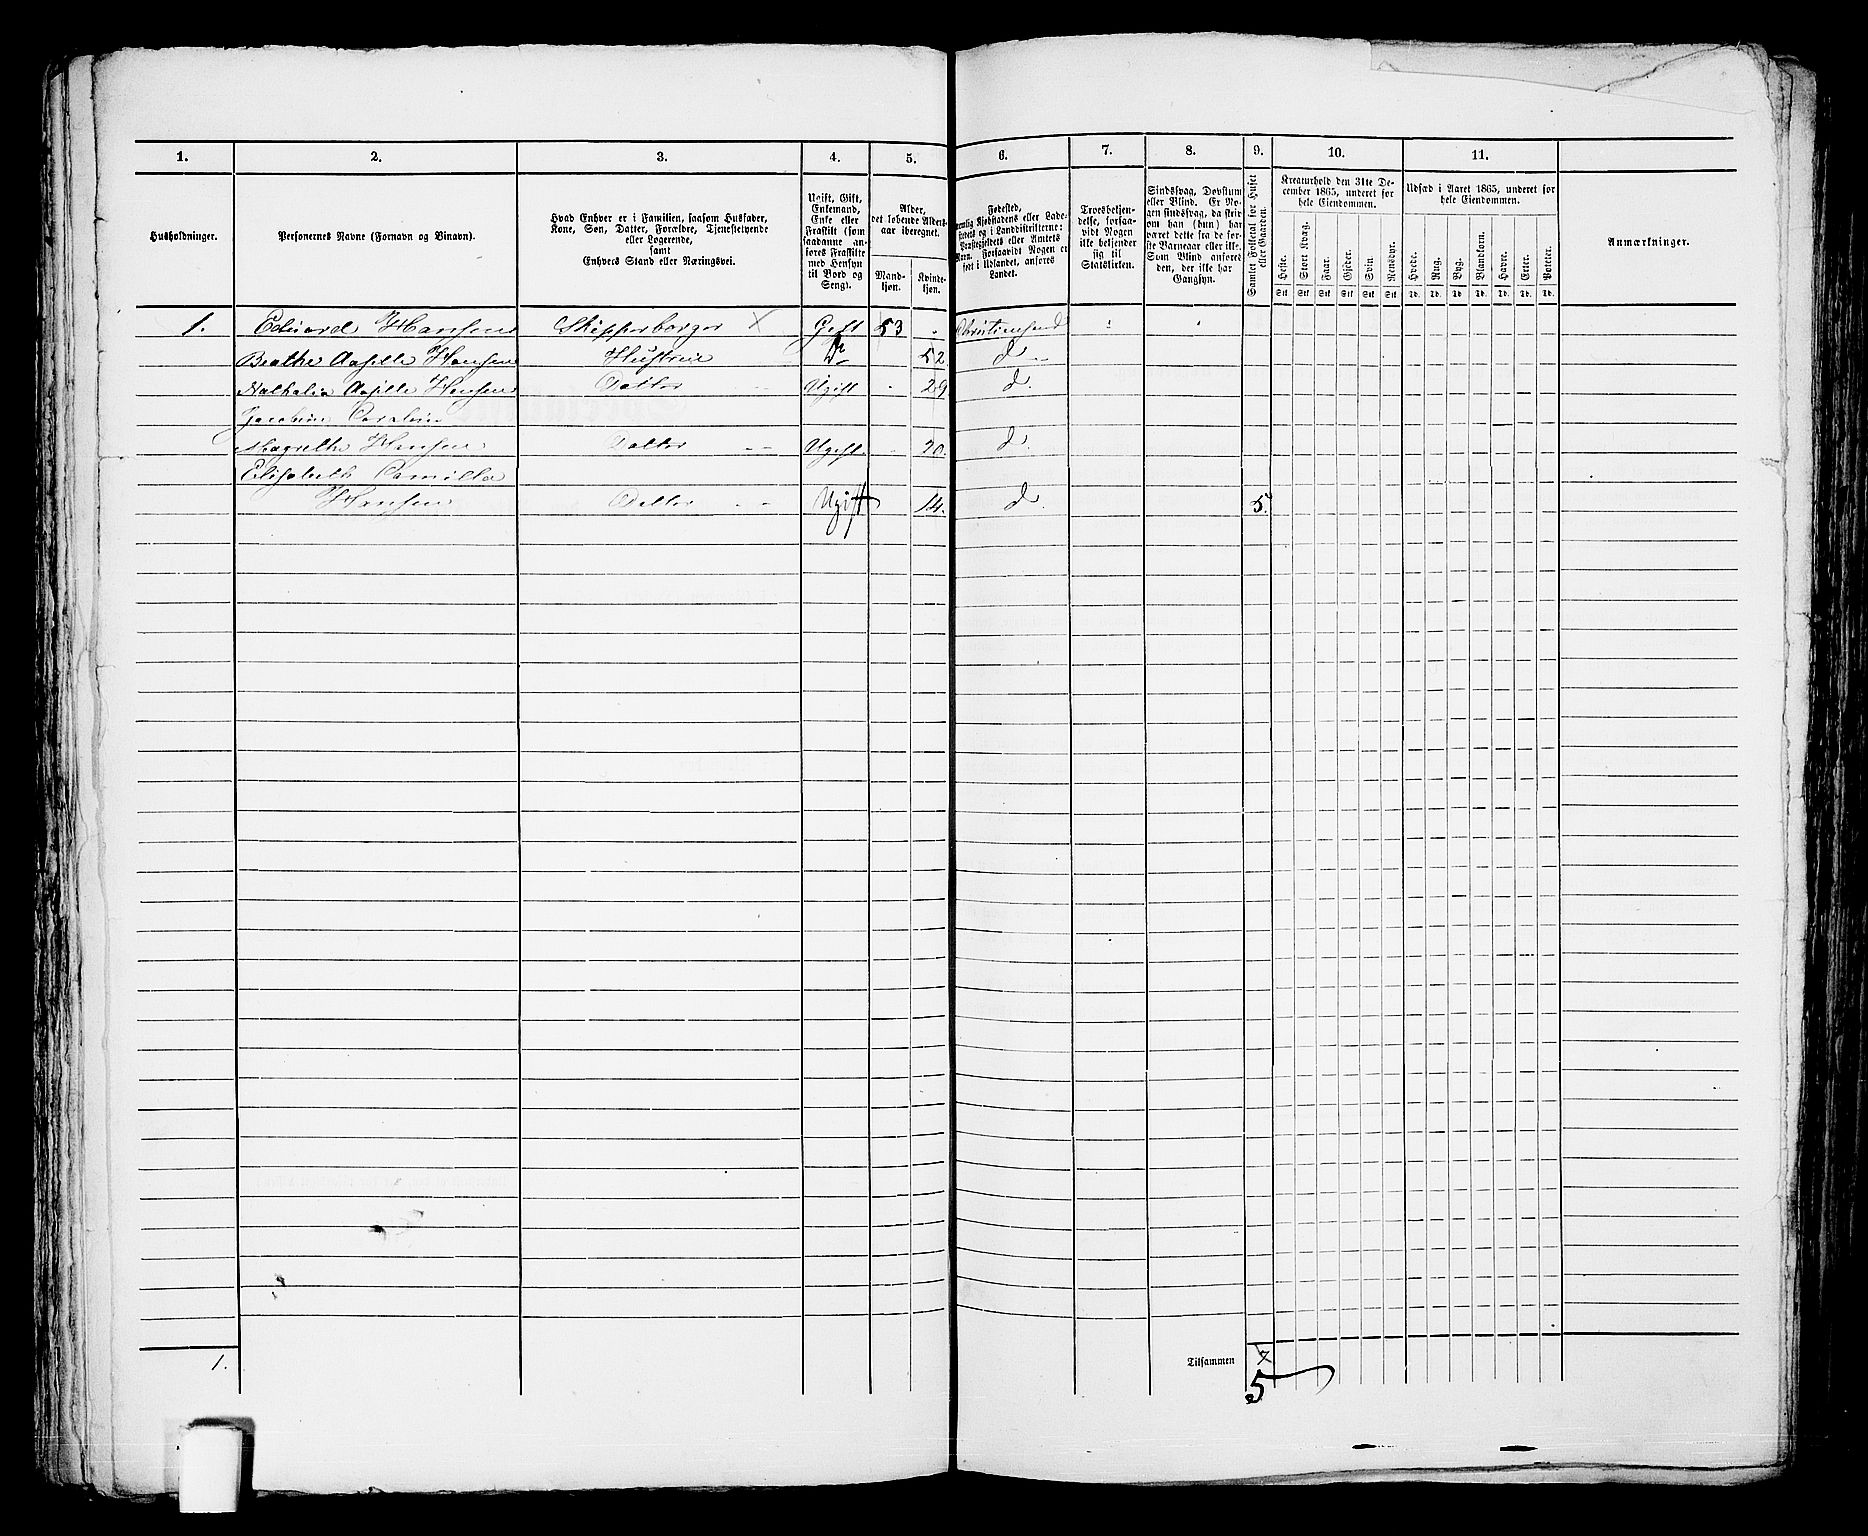 1. 2. 3. 4. 5. 6. 7. 8. 9. 10. 11.
Husholdninger.
Personernes Navne (Fornavn og Binavn).
Hvad Enhver er i Familien, saasom Husfader,
Kone, Søn, Datter, Forældre, Tjenestetyende
eller Logerende,
samt
Enhvers Stand eller Næringsvei.
Ugift, Gift,
Enkemand,
Enke eller
Fraskilt (som
saadanne an-
føres Fraskilte
med Hensyn
til Bord og
Seng).
Alder,
det løbende Alders-
aar iberegnet.
Mand-
kjøn.
Kvinde-
kjøn.
Fødested,
nemlig Kjøbstadens eller Lade-
stedets og i Landdistrikterne:
Præstegjeldets eller Amtets
Navn. Forsaavidt Nogen er
født i Udlandet, anføres
Landet.
Troesbekjen-
delse, forsaa-
vidt Nogen
ikke bekjender
sig til
Statskirken.
Sindssvag, Døvstum
eller Blind. Er No-
gen sindssvag, da skriv
om han (hun) har
været dette fra de før-
ste Barneaar eller ikke.
Som Blind anføres
den, der ikke har
Gangsyn.
Samlet Folketal for Huset
eller Gaarden.
Kreaturhold den 31te De-
cember 1865, underet for
hele Eiendommen.
Heste. Stort Kvæg. Faar. Gjeder. Svin. Rensdyr.
Stk Stk Stk Stk Stk Stk
Udsæd i Aaret 1865, underet for
hele Eiendommen.
Hvede. Rug. Byg. Blandkorn. Havre. Erter. Poteter.
Td. Td. Td. Td. Td. Td. Td.
Anmærkninger.
1. Eduard Hansen Skipperborger X Gift 53 Christiansand
Beathe Hansen Hustrue Do 52 d
Nathalia Hansen Datter Ugift 29 d.
Jacobine
Magrethe Hansen Datter Ugift 20. d
Elisabeth Camilla
Hansen Datter Ugift 14. d. 5.
1. Tilsammen 7
5